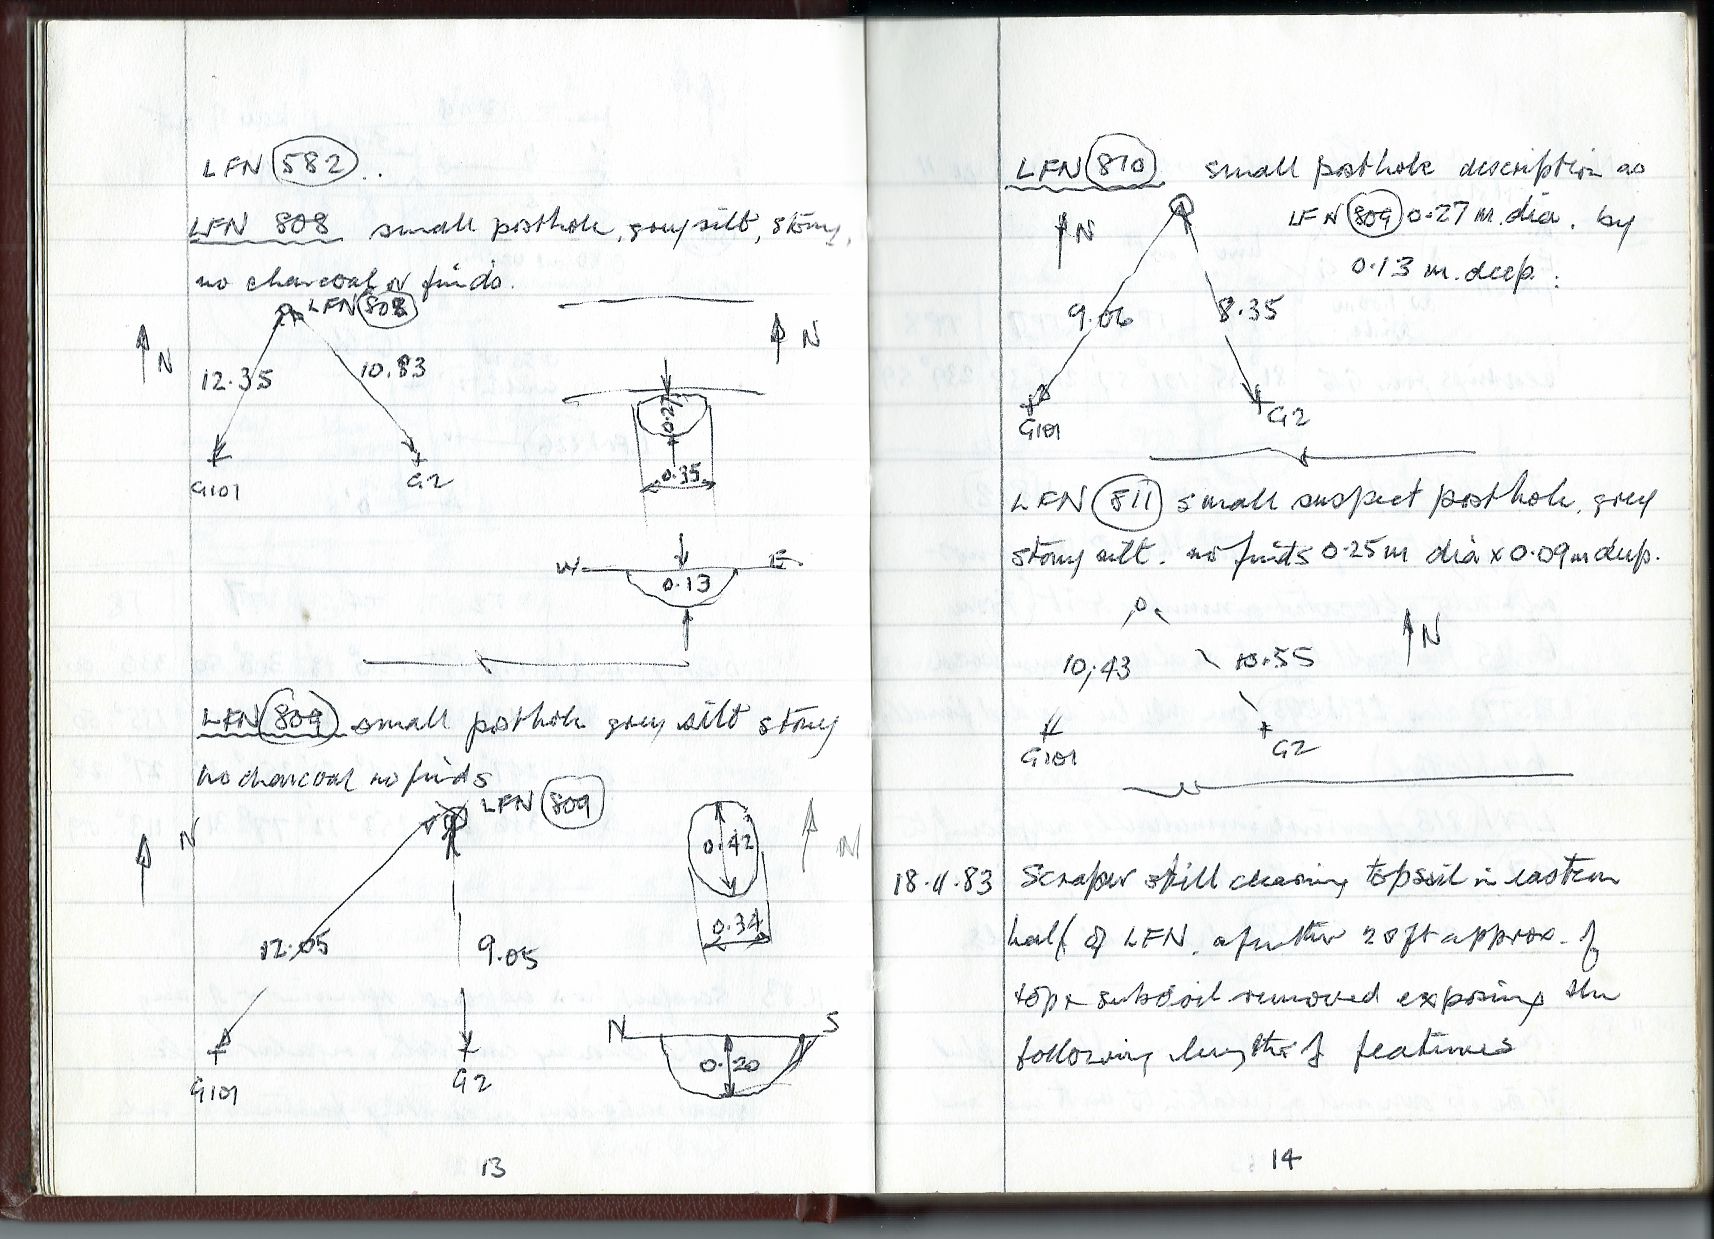 LFN 582 ..
LFN 808 small posthole, grey silt, stony,
no charcoal or finds.
LFN 808
N
N
12.35
10.83
G101
G2
0.27
0.35
W
E
0.13
LFN 809 small posthole grey silt stony
no charcoal no finds
LFN 809
N
N
12.05
9.05
G101
G2
0.42
0.34
N
S
0.20
13
LFN 810 small posthole description as
LFN 809 0.27 m. dia. by
0.13 m. deep.
N
9.06
8.35
G101
G2
LFN 811 small suspect posthole, grey
stony silt. no finds 0.25m dia x 0.09m deep.
N
10.43
10.55
G101
G2
18.11.83 Scraper still clearing topsoil in eastern
half of LFN, a further 20ft approx. of
top & subsoil removed exposing the
following lengths of features
14